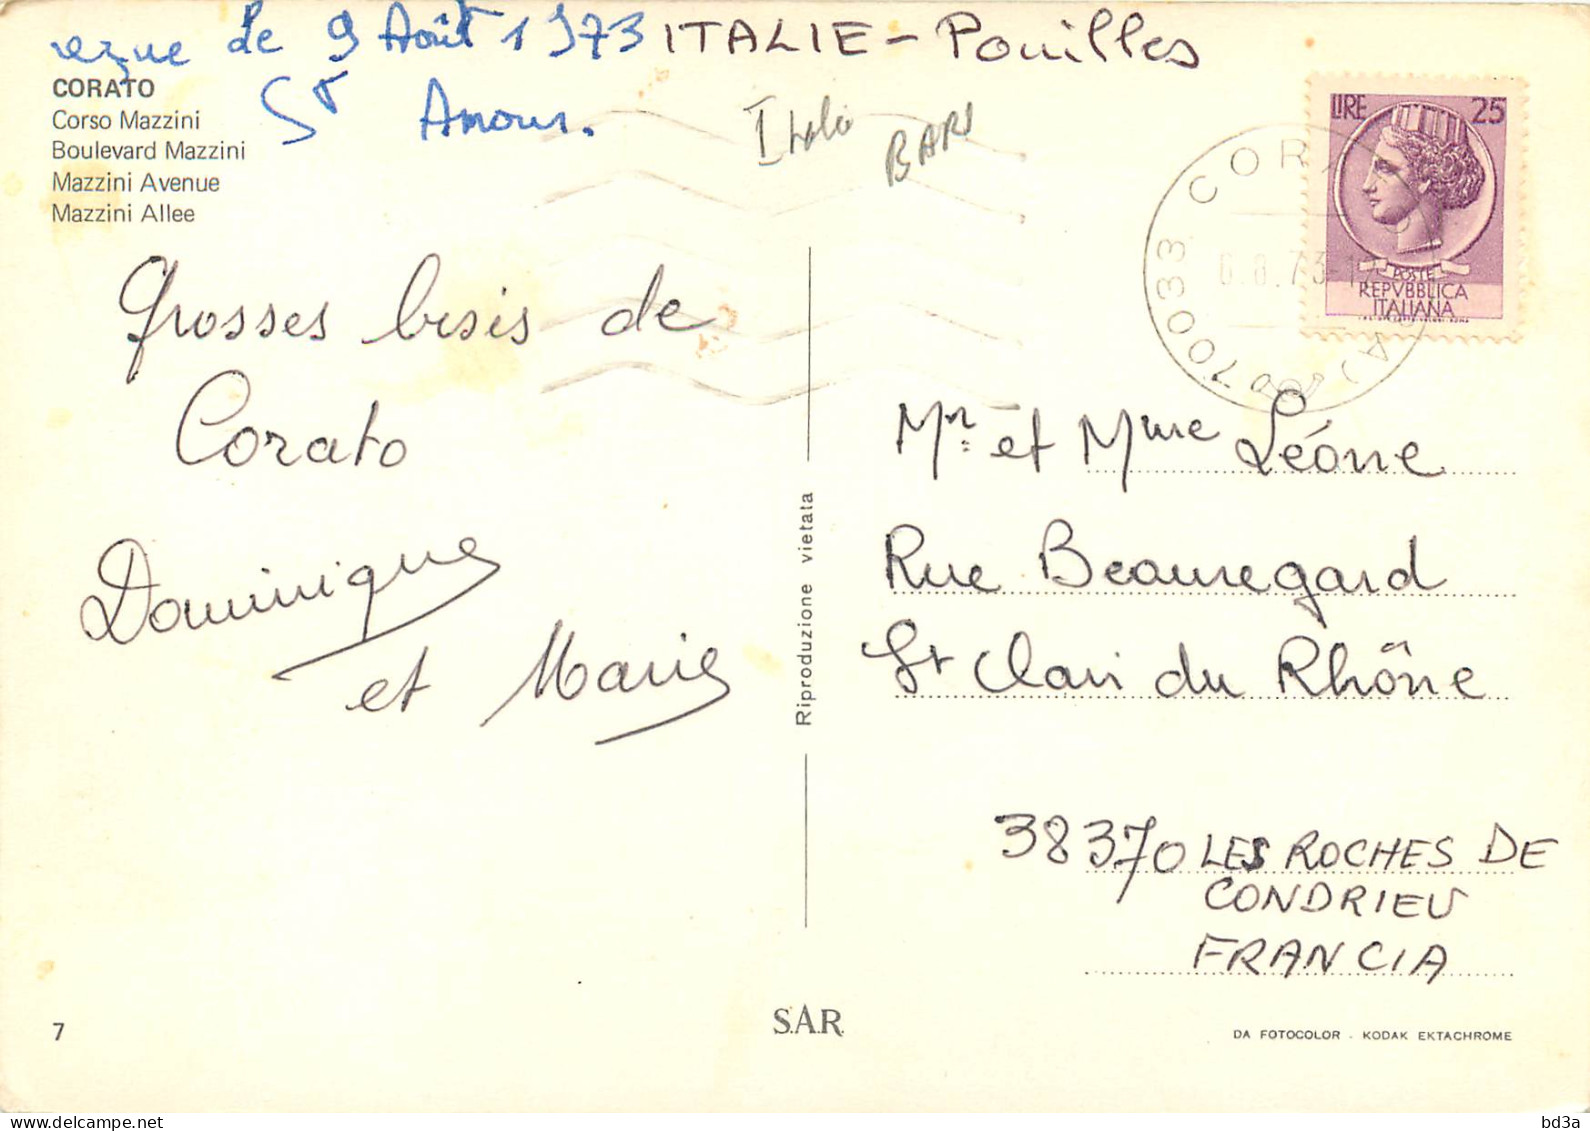 reçue le 9 Août 1973 ITALIE - Pouilles
St Amour.
Italie
BARI
CORATO
Corso Mazzini
Boulevard Mazzini
Mazzini Avenue
Mazzini Allee
LIRE 25
POSTE
REPVBBLICA
ITALIANA
70033 CORATO
6.8.73-1
Grosses bises de
Corato
Dominique
et Marie
Riproduzione vietata
Mr et Mme Léone
Rue Beauregard
St Clair du Rhône
38370 LES ROCHES DE
CONDRIEU
FRANCIA
7
S.A.R.
DA FOTOCOLOR - KODAK EKTACHROME
bd3a